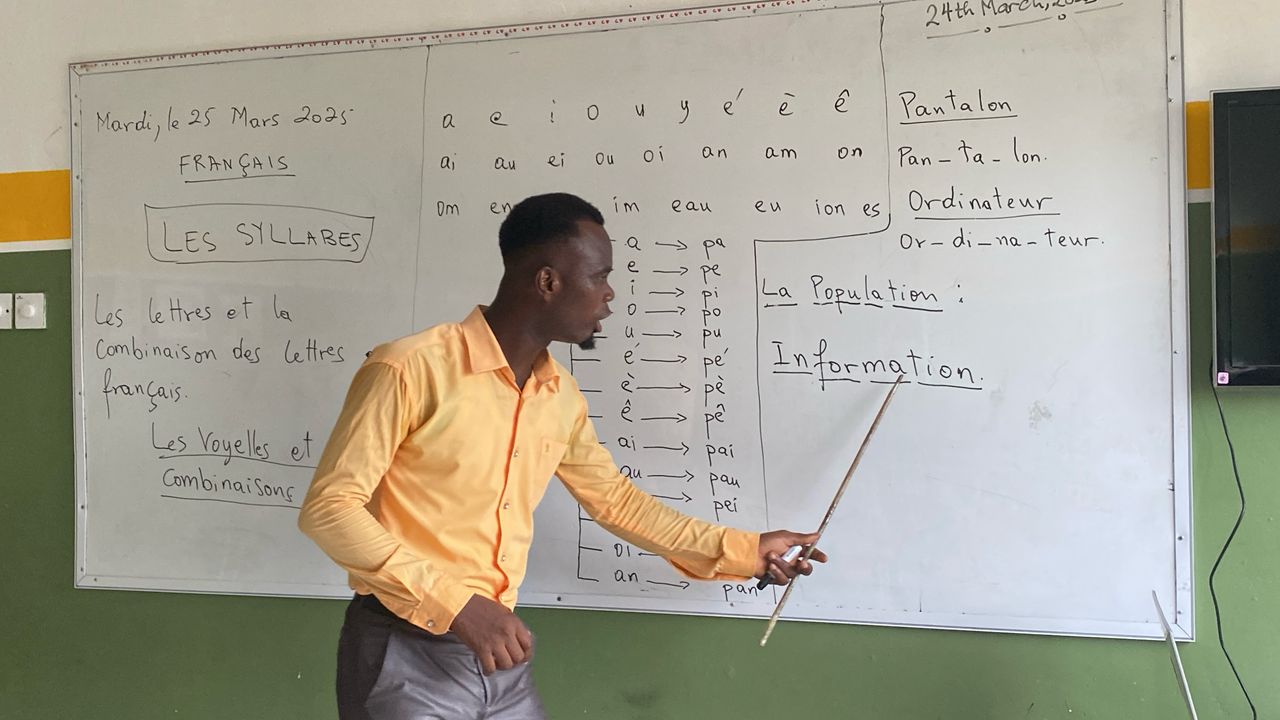 Mardi, le 25 Mars 2025
FRANÇAIS
LES SYLLABES
Les lettres et la
Combinaison des lettres
français.
Les Voyelles et
Combinaisons
a e i o u y é è ê
ai au ei ou oi an am on
om en im eau eu ion es
a → pa
e → pe
i → pi
o → po
u → pu
é → pé
è → pè
ê → pê
ai → pai
au → pau
→ pei
oi
an → pan
24th March,
Pantalon
Pan-ta-lon.
Ordinateur
Or-di-na-teur.
La Population :
Information.